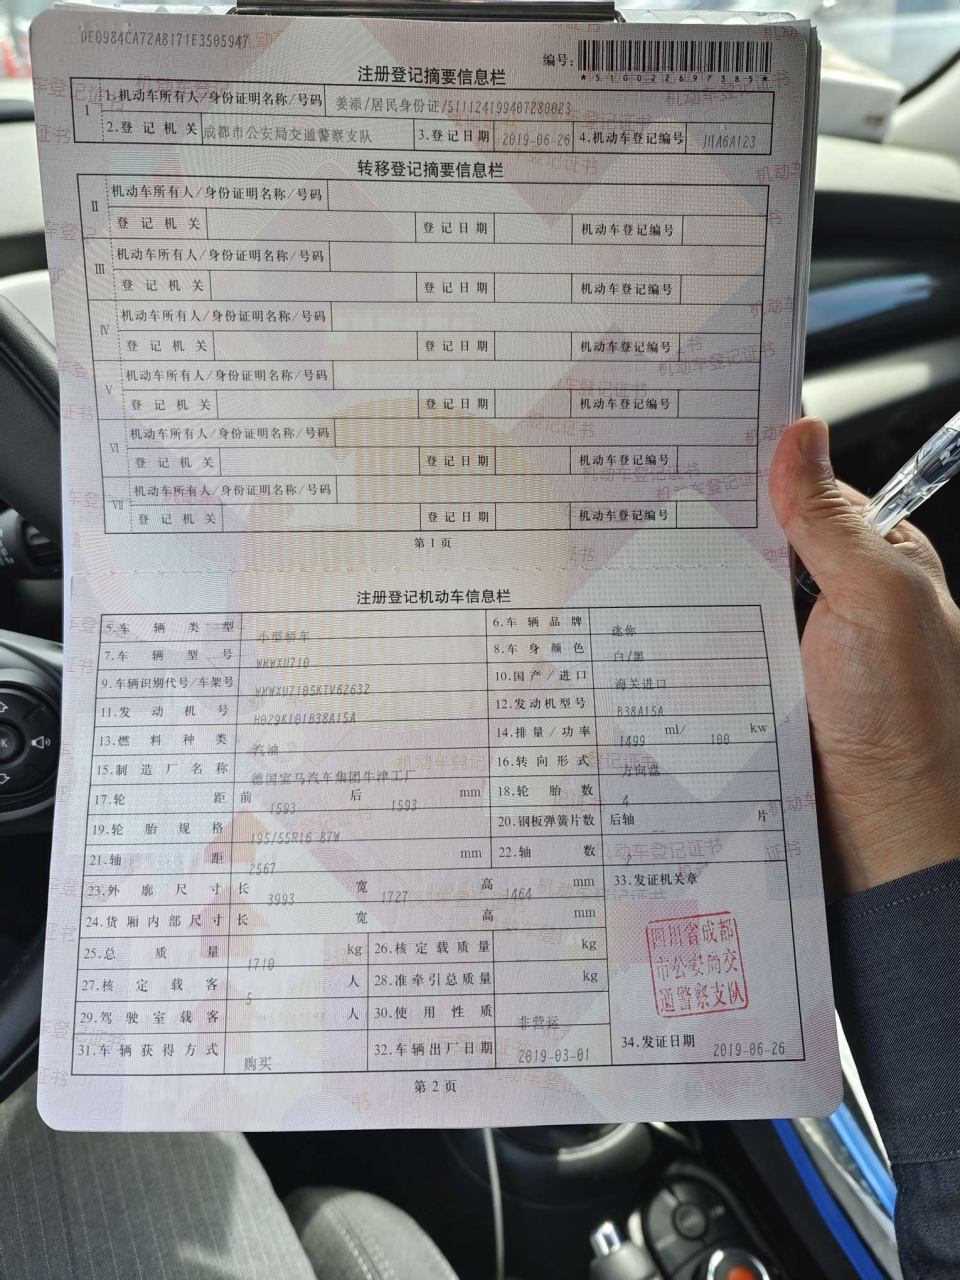 DE0984CA72A8171E3505947
编号:
*510022697385*
注册登记摘要信息栏
I 1.机动车所有人/身份证明名称/号码 姜添/居民身份证/511124199407280023
2.登记机关 成都市公安局交通警察支队 3.登记日期 2019-06-26 4.机动车登记编号 川A6A123
转移登记摘要信息栏
II 机动车所有人/身份证明名称/号码
登记机关 登记日期 机动车登记编号
III 机动车所有人/身份证明名称/号码
登记机关 登记日期 机动车登记编号
IV 机动车所有人/身份证明名称/号码
登记机关 登记日期 机动车登记编号
V 机动车所有人/身份证明名称/号码
登记机关 登记日期 机动车登记编号
VI 机动车所有人/身份证明名称/号码
登记机关 登记日期 机动车登记编号
VII 机动车所有人/身份证明名称/号码
登记机关 登记日期 机动车登记编号
第1页
注册登记机动车信息栏
5.车辆类型 小型轿车 6.车辆品牌 迷你
7.车辆型号 WMWXU710 8.车身颜色 白/黑
9.车辆识别代号/车架号 WMWXU7105KTV62632 10.国产/进口 海关进口
11.发动机号 H029K101B38A15A 12.发动机型号 B38A15A
13.燃料种类 汽油 14.排量/功率 1499 ml/ 100 kw
15.制造厂名称 德国宝马汽车集团牛津工厂 16.转向形式 方向盘
17.轮距 前 1593 后 1593 mm 18.轮胎数 4
19.轮胎规格 195/55R16 87W 20.钢板弹簧片数 后轴 -- 片
21.轴距 2567 mm 22.轴数 2
23.外廓尺寸 长 3993 宽 1727 高 1464 mm 33.发证机关章
24.货厢内部尺寸 长 宽 高 mm
25.总质量 1710 kg 26.核定载质量 -- kg
27.核定载客 5 人 28.准牵引总质量 kg
29.驾驶室载客 人 30.使用性质 非营运
31.车辆获得方式 购买 32.车辆出厂日期 2019-03-01 34.发证日期 2019-06-26
四川省成都
市公安局交
通警察支队
第2页